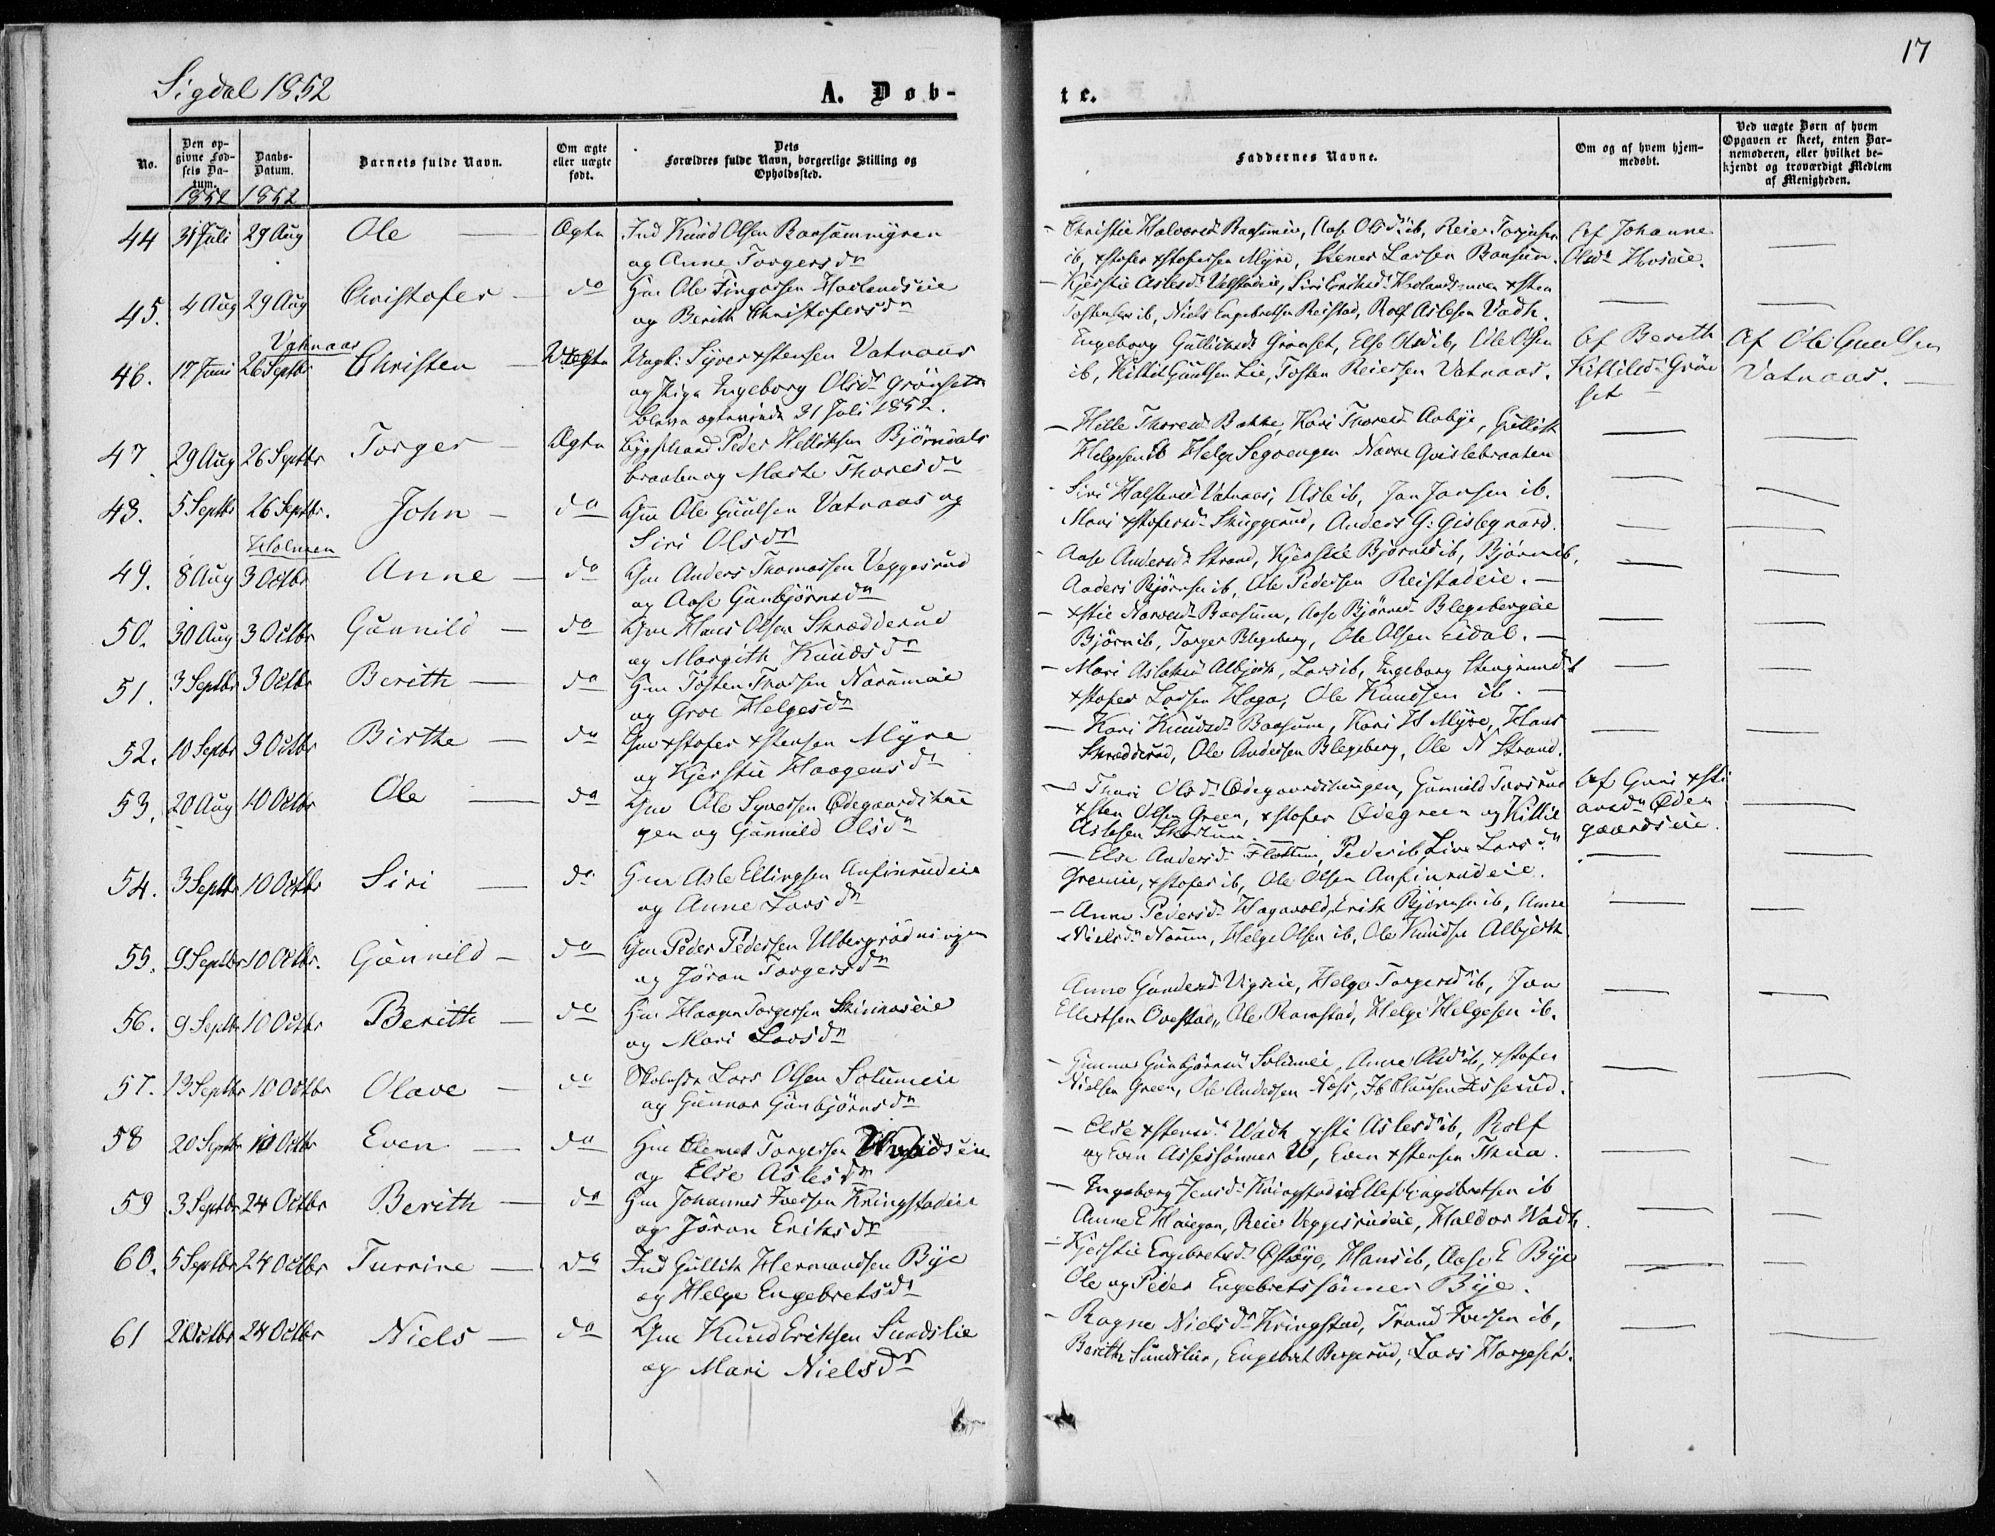 17
Sigdal 1852
A. Døb-
te.
No.
Den op-
givne Fød-
sels Da-
tum.
1852
Daabs-
Datum.
1852
Barnets fulde Navn.
Om ægte
eller uægte
født.
Dets
Forældres fulde Navn, borgerlige Stilling og
Opholdssted.
Faddernes Navne.
Om og af hvem hjem-
medøbt.
Ved uægte Børn af hvem
Opgaven er skeet, enten Bar-
nemoderen, eller hvilket be-
kjendt og troværdigt Medlem
af Menigheden.
44 31 Juli 29 Aug Ole — Ægte Ind Knud Olsen
og Anne Torgersdr
Olsdr ib,
ib, Xstofer Xstofersen Myre, Larsen Baasum.
Af Johanne
Olsdr
45. 4 Aug 29 Aug Christofer — do Gm Ole
og Berith Christofersdr
Kjerstie Aslesdr
ib, Niels Engebretsen Reistad, Rolf Aslesen Vadh.
Vatnaas
46. 17 Juni 26 Septbr Christen — Uægte Ungk: Syver Xstensen Vatnaas
og Pige Ingeborg Olsdr Grønset
bleve ægteviede 31 Juli 1852.
Engeborg Gulliksdr Grønset, Else Olsdr ib, Ole Olsen
ib, Kittil Gulsen Lie, Tosten Reiersen Vatnaas.
Af Berith
Kittilsdr Grøn
set
Af Ole Guulsen
Vatnaas. —
47. 29 Aug 26 Septbr Torger — Ægte Peder Helliksen Bjørndals
braaten og Marte Thoresdr
— Helle Thoresdr Bakke, Kari Thoresdr Aabye, Gullik
Helgesen ib Helge
48. 5 Septbr 26 Septbr. John — do Gm Ole Guulsen Vatnaas og
Siri Olsdr
Siri Vatnaas, Asle ib, Jon Jonsen ib.
Mari Xstofersdr Skuggerud, Anders G: Gislegaard.
Holmen
49. 8 Aug 3 Octbr Anne — do Gm Anders Thomassen Veggesrud
og Aase Gunbjørnsdr
Aase Andersdr Strand, Kjerstie Bjørnsdr ib, Bjørn ib,
Anders Bjørnsen ib, Ole Pedersen Reistadeie. —
50. 30 Aug 3 Octbr Gunnild — do Gm Hans Olsen Skrædderud
og Margith Knudsdr
— Xstie Baasum, Aase Bjørnsdr Blegebergeie
Bjørn ib, Torger Blegeberg, Ole Olsen Eidal. —
51. 3 Septbr 3 Octbr Berith — do Gm Tosten Thorsen
og Groe Helgesdr
— Mari Albjerk, Lars ib, Ingeborg
Xstofer Larsen Haga, Ole Knudsen ib. —
52. 10 Septbr 3 Octbr Birthe — do Gm Xstofer Xstensen Myre
og Kjerstie Haagensdr
— Kari Knudsdr Baasum, Kari H Myre, Hans
Skrædderud, Ole Andersen Blegeberg, Ole N Strand.
53. 20 Aug 10 Octbr Ole — do Gm Ole Syversen Ødegaardshau
gen og Gunnild Olsdr
— Thori Olsdr Ødegaardshaugen, Gunnild
Xsten Olsen Green, Xstofer Ødegreen og Kittil
Aslesen
Af Guri Xsti
ansdr Øde
gaardseie.
54. 3 Septbr 10 Octbr Siri — do Gm Asle Ellingsen Anfinrudeie
og Anne Larsdr
— Else Andersdr Flottum, Peder ib, Live Larsdr
Xstofer ib, Ole Olsen Anfinrudeie.
55. 9 Septbr 10 Octbr. Gunnild — do Gm Peder Pedersen
og Jøran Torgersdr
— Anne Pedersdr Erik Bjørnsen ib, Anne
Nielsdr Norum, Helge Olsen ib, Ole Knudsen Albjerk
56. 9 Septbr 10 Octbr Berith — do Gm Haagen Torgersen
og Mari Larsdr
Anne Gundersdr Helge Torgersdr ib, Jon
Ellertsen Ovestad, Ole Ramstad, Helge Helgesen ib.
57. 13 Septbr 10 Octbr Olave — do Lars Olsen Solumeie
og Gunnor Gunbjørnsdr
Gunnor Gunbjørnsdr Solumeie, Anne Olsdr ib, Xstofer
Nielsen Green, Ole Andersen Næss,
58 20 Septbr 10 Octbr Even — do Gm Clemet Torgersen
og Else Aslesdr
— Else Xstensdr Wadh, Xsti Aslesdr ib, Rolf
og Even Aslessønner W, Even Xstensen
59 3 Septbr 24 Octbr Berith — do Gm Johannes Iversen Kringstadeie
og Jøran Eriksdr
— Ingeborg Jensdr Kringstadeie Ellef Engebretsen ib
Anne E Haugan, Reier Veggesrudeie, Haldor Wadh.
60. 5 Septbr 24 Octbr Turrine — do Ind Gullik Hermandsen Bye
og Helge Engebretsdr
— Kjerstie Engebretsdr Østbye, Hans ib, Aase E Bye
Ole og Peder Engebretssønner Bye.
61 2 Octbr 24 Octbr Niels — do Gm Knud Eriksen Sundslie
og Mari Nielsdr
— Ragne Nielsdr Kringstad, Trond Iversen ib,
Berithe Sundslie, Engebret Bergerud, Lars Horgeset.